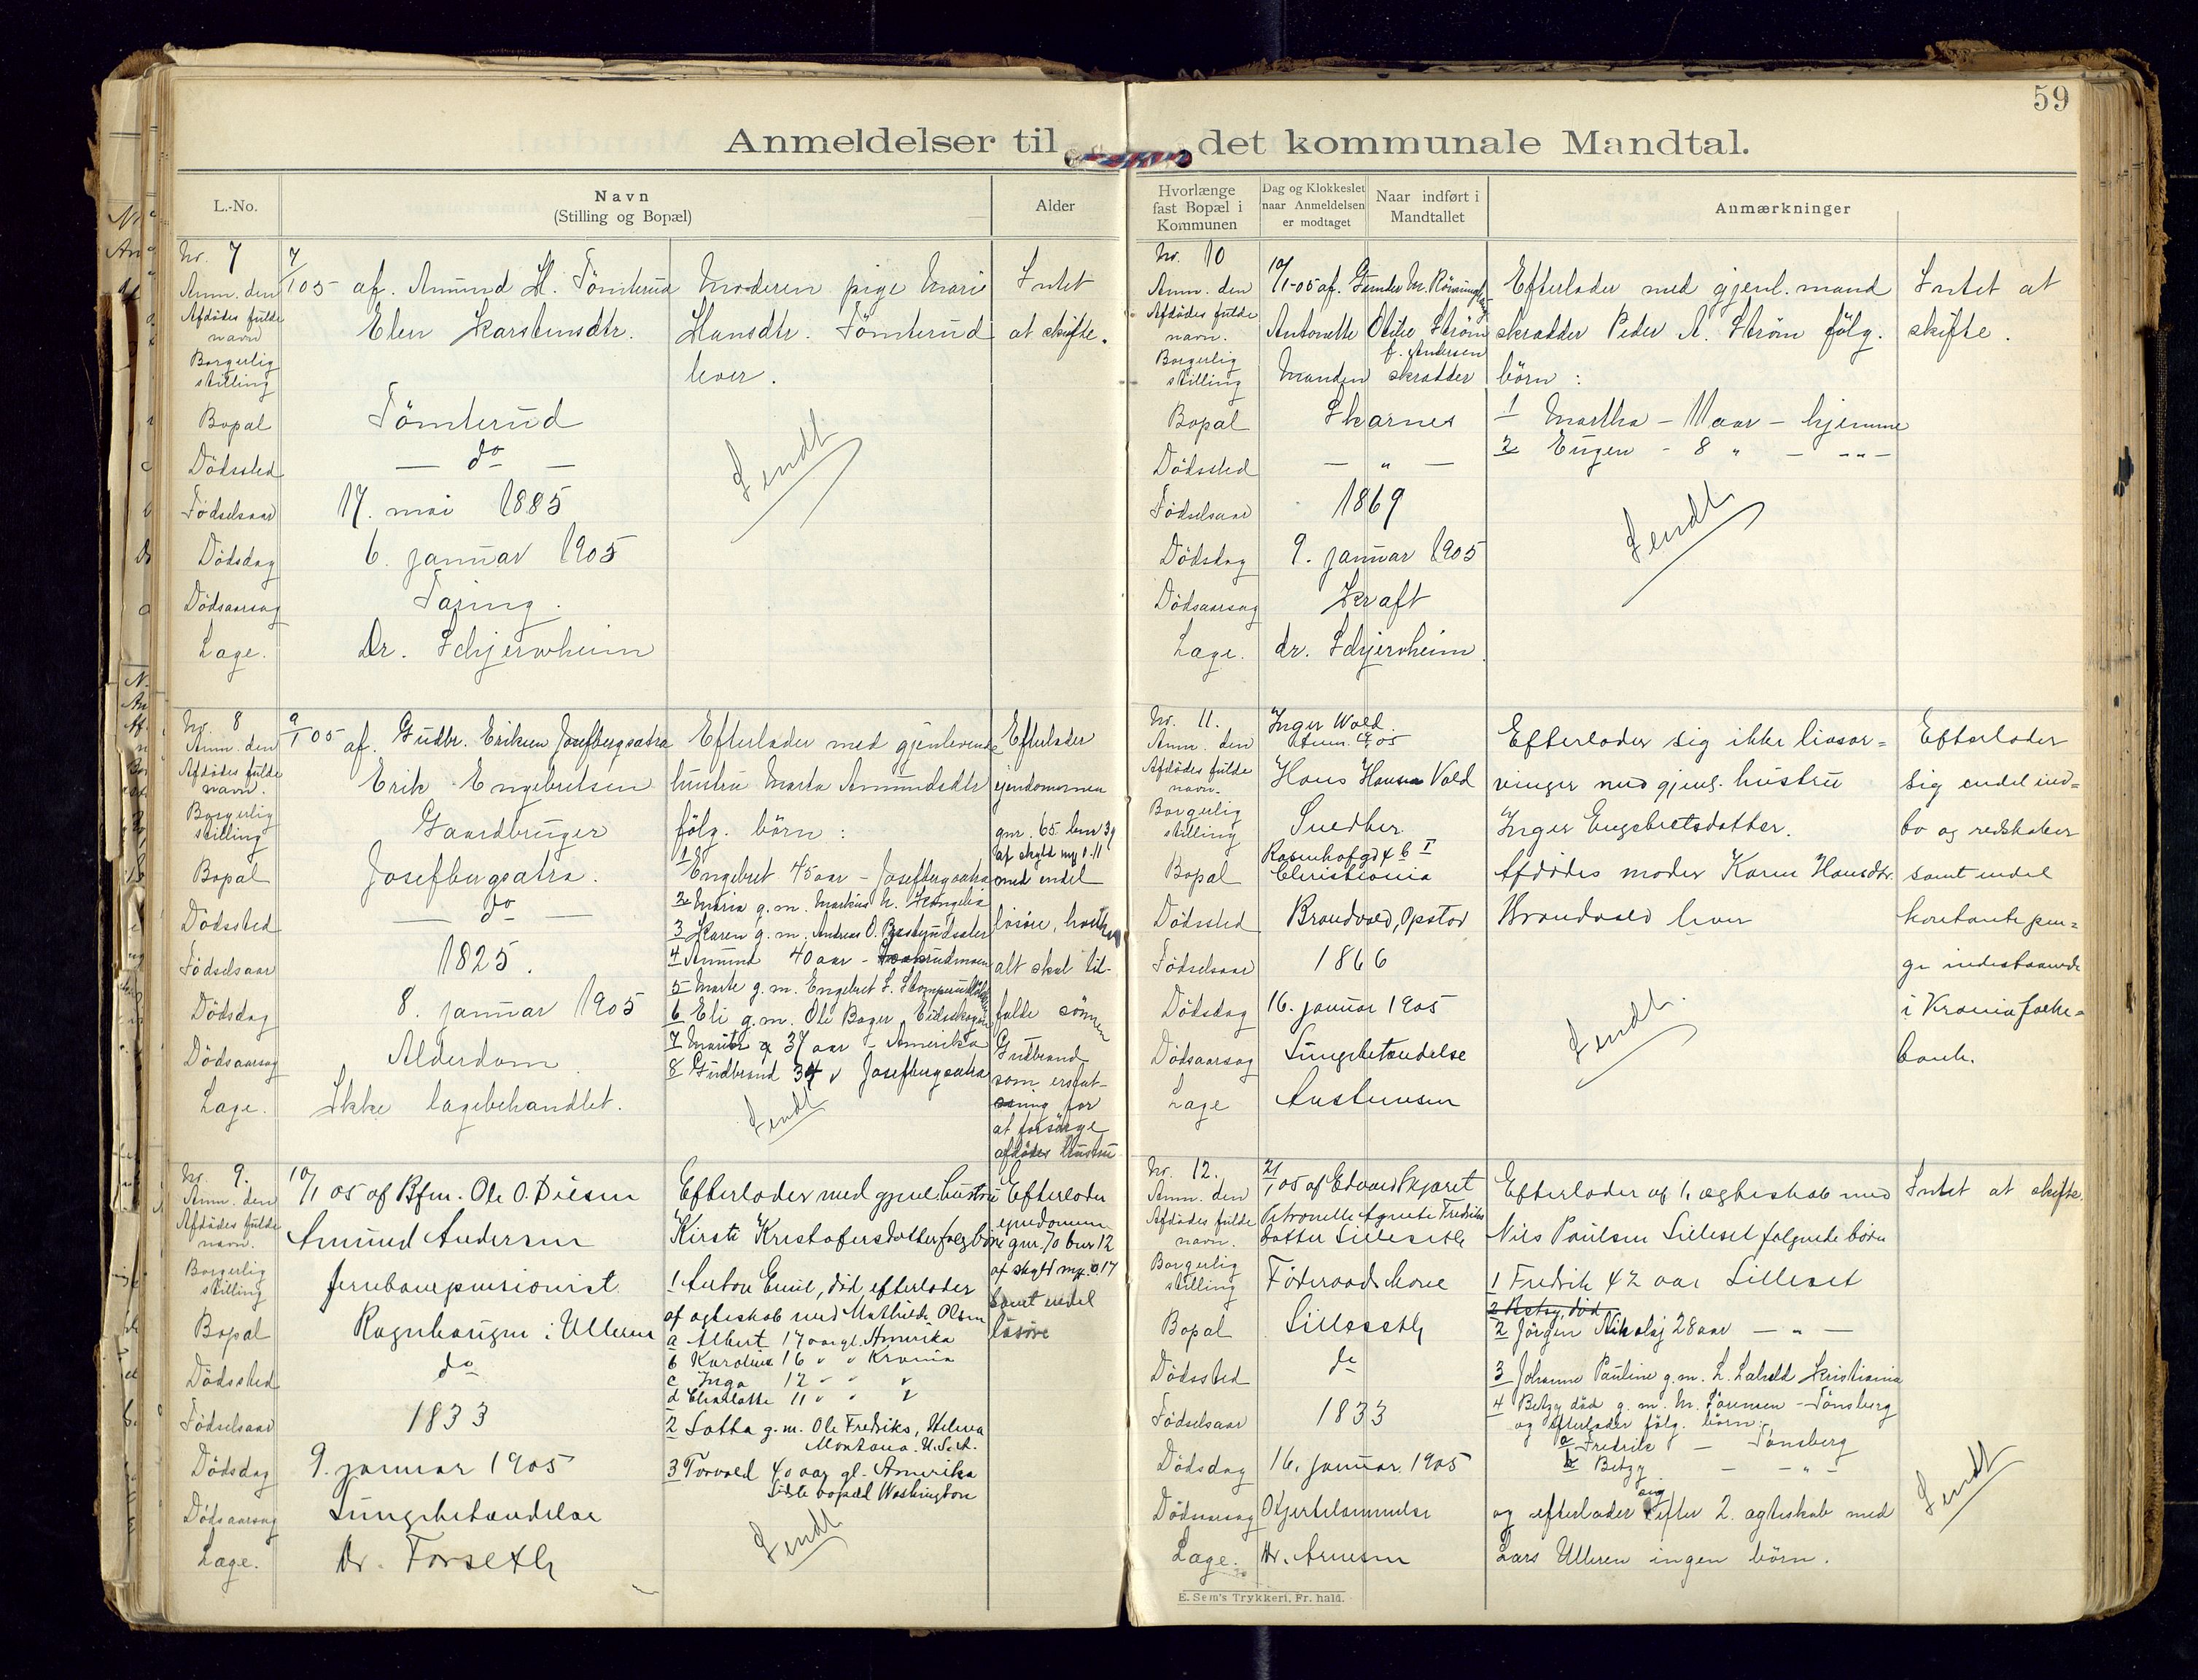 59
Anmeldelser til det kommunale Mandtal.
L.-No.
Navn
(Stilling og Bopæl)
Alder
Hvorlænge fast Bopæl i Kommunen
Dag og Klokkeslet naar Anmeldelsen er modtaget
Naar indført i Mandtallet
Anmærkninger
Nr. 7
Anm. den 7/1 05 af. Amund H. Tömterud
Afdödes fulde navn Elen Karstensdtr.
Borgerlig stilling
Bopæl Tömterud
Dödssted — do —
Födselsaar 17. mai 1885
Dödsdag 6. januar 1905
Dödsaarsag Tæring.
Læge. Dr. Schjervheim
Moderen pige Mari
Hansdtr. Tömterud
lever.
Sendt
Intet
at skifte.
Nr. 8
Anm. den 9/1 05 af. Gudbr. Eriksen Josefbergsætra
Afdödes fulde navn. Erik Engebretsen
Borgerlig stilling Gaardbruger
Bopæl Josefbergsætra.
Dödssted — do —
Födselsaar 1825.
Dödsdag 8. januar 1905
Dödsaarsag Alderdom.
Læge. Ikke lægebehandlet.
Efterlader med gjenlevende
hustru Marta Amundsdtr
fölg. börn:
1 Engebret 45 aar - Josefbergsætra
2 Maria g.m. Markus
3 Karen g.m. Andreas O.
4 Amund 40 aar -
5 Marte g.m. Engebret L.
6 Eli g.m. Ole Bager Eidskogen
7 37 aar - Amerika
8 Gudbrand 34 " Josefbergsætra
Sendt
Efterlader
eiendommen
gnr. 65 bnr 39
af skyld mk 0.11
med endel
lösöre, hvilket
alt skal til-
falde sönnen
Gudbrand
som erstat-
ning for
at forsörge
afdödes hustru
Nr. 9.
Anm. den 10/1 05 af Bfm. Ole O. Diesen
Afdödes fulde navn. Amund Andersen
Borgerlig stilling jernbanepensionist.
Bopæl Ragnhaugen i Ulleren
Dödssted do
Födselsaar 1833
Dödsdag 9. januar 1905
Dödsaarsag Lungebetændelse
Læge. Dr. Forseth
Efterlader med gjenl. hustru
Kirsti Kristofersdatter følg børn
1 Anton Emil, död, efterlader
af ægteskab med Mathilde Olsen
a Albert 17 aar gl. Amerika
b Karoline 16 " " Krania
c Inga 12 " " "
d Charlotte 11 " " "
2 Lotta g.m. Ole Fredriks, Helena
Montana. U.S.A.
3 Torvald 40 aar gl. Amerika
Sidste bopæl Washington
Sendt
Efterlader
eiendommen
gnr. 70 bnr 12
af skyld mk. 0.17
samt endel
lösöre
Nr. 10
Anm. den 10/1-05 af. Gunder M.
Afdödes fulde navn. Antonette Otilie Ström
f. Andersen
Borgerlig stilling Manden skrædder
Bopæl Skarnes
Dödssted — " —
Födselsaar 1869
Dödsdag 9. januar 1905
Dödsaarsag Kræft
Læge. dr. Schjervheim.
Efterlader med gjenl. mand
skrædder Peder A. Ström fölg.
börn:
1 Martha - 11 aar - hjemme
2 Eugen - 8 " - -"-
Sendt
Intet at
skifte.
Nr. 11.
Anm. den Inger Wold
Anm. 05
Afdödes fulde navn. Hans Hansen Vold
Borgerlig stilling Snedker
Bopæl Rosenhofgd 4 b I
Christiania
Dödssted Brandvold, Opstad
Födselsaar 1866
Dödsdag 16. januar 1905
Dödsaarsag Lungebetændelse
Læge Austensen
Efterlader sig ikke livsar=
vinger med gjenl. hustru
Inger Engebretsdatter.
Afdödes moder Karen Hansdtr.
Brandvold lever
Sendt.
Efterlader
sig endel ind=
bo og redskaber
samt endel
kontante pen=
ge indestaaende
i Krania folke=
bank.
Nr. 12.
Anm. den 21/1 05 af Edvard Skjæret
Afdödes fulde navn. Petronelle Agnete Fredriks
datter Lilleseth
Borgerlig stilling Föderaadskone
Bopæl Lilleseth
Dödssted do
Födselsaar 1833
Dödsdag 16. januar 1905
Dödsaarsag Hjertelammelse
Læge. Dr. Arnesen
Efterlader af 1. ægteskab med
Nils Paulsen Lilleset følgende børn
1 Fredrik 42 aar Lilleset
2 Betzy, död
2 Jörgen Nikolaj 28 aar — " —
3 Johanne Pauline g.m. L. Kristiania
4 Betzy död g.m. M. Sörensen - Tönsberg
og efterlader fölg. börn:
a Fredrik — Tönsberg
b Betzy — - " -
og efterlader sig efter 2. ægteskab med
Lars Ulleren ingen börn.
Intet at skifte.
Sendt
E. Sem's Trykkeri, Fr.hald.